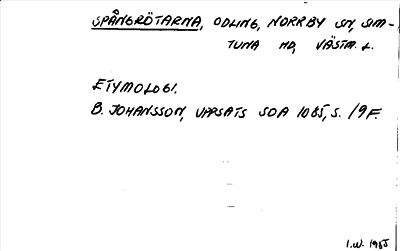 SPÅNGRÖTARNA, ODLING, NORRBY SN, SIM-
TUNA HD, VÄSTM. L.
ETYMOLOGI.
B. JOHANSSON, UPPSATS SOA 1065, S. 19 F.
I.W. 1985